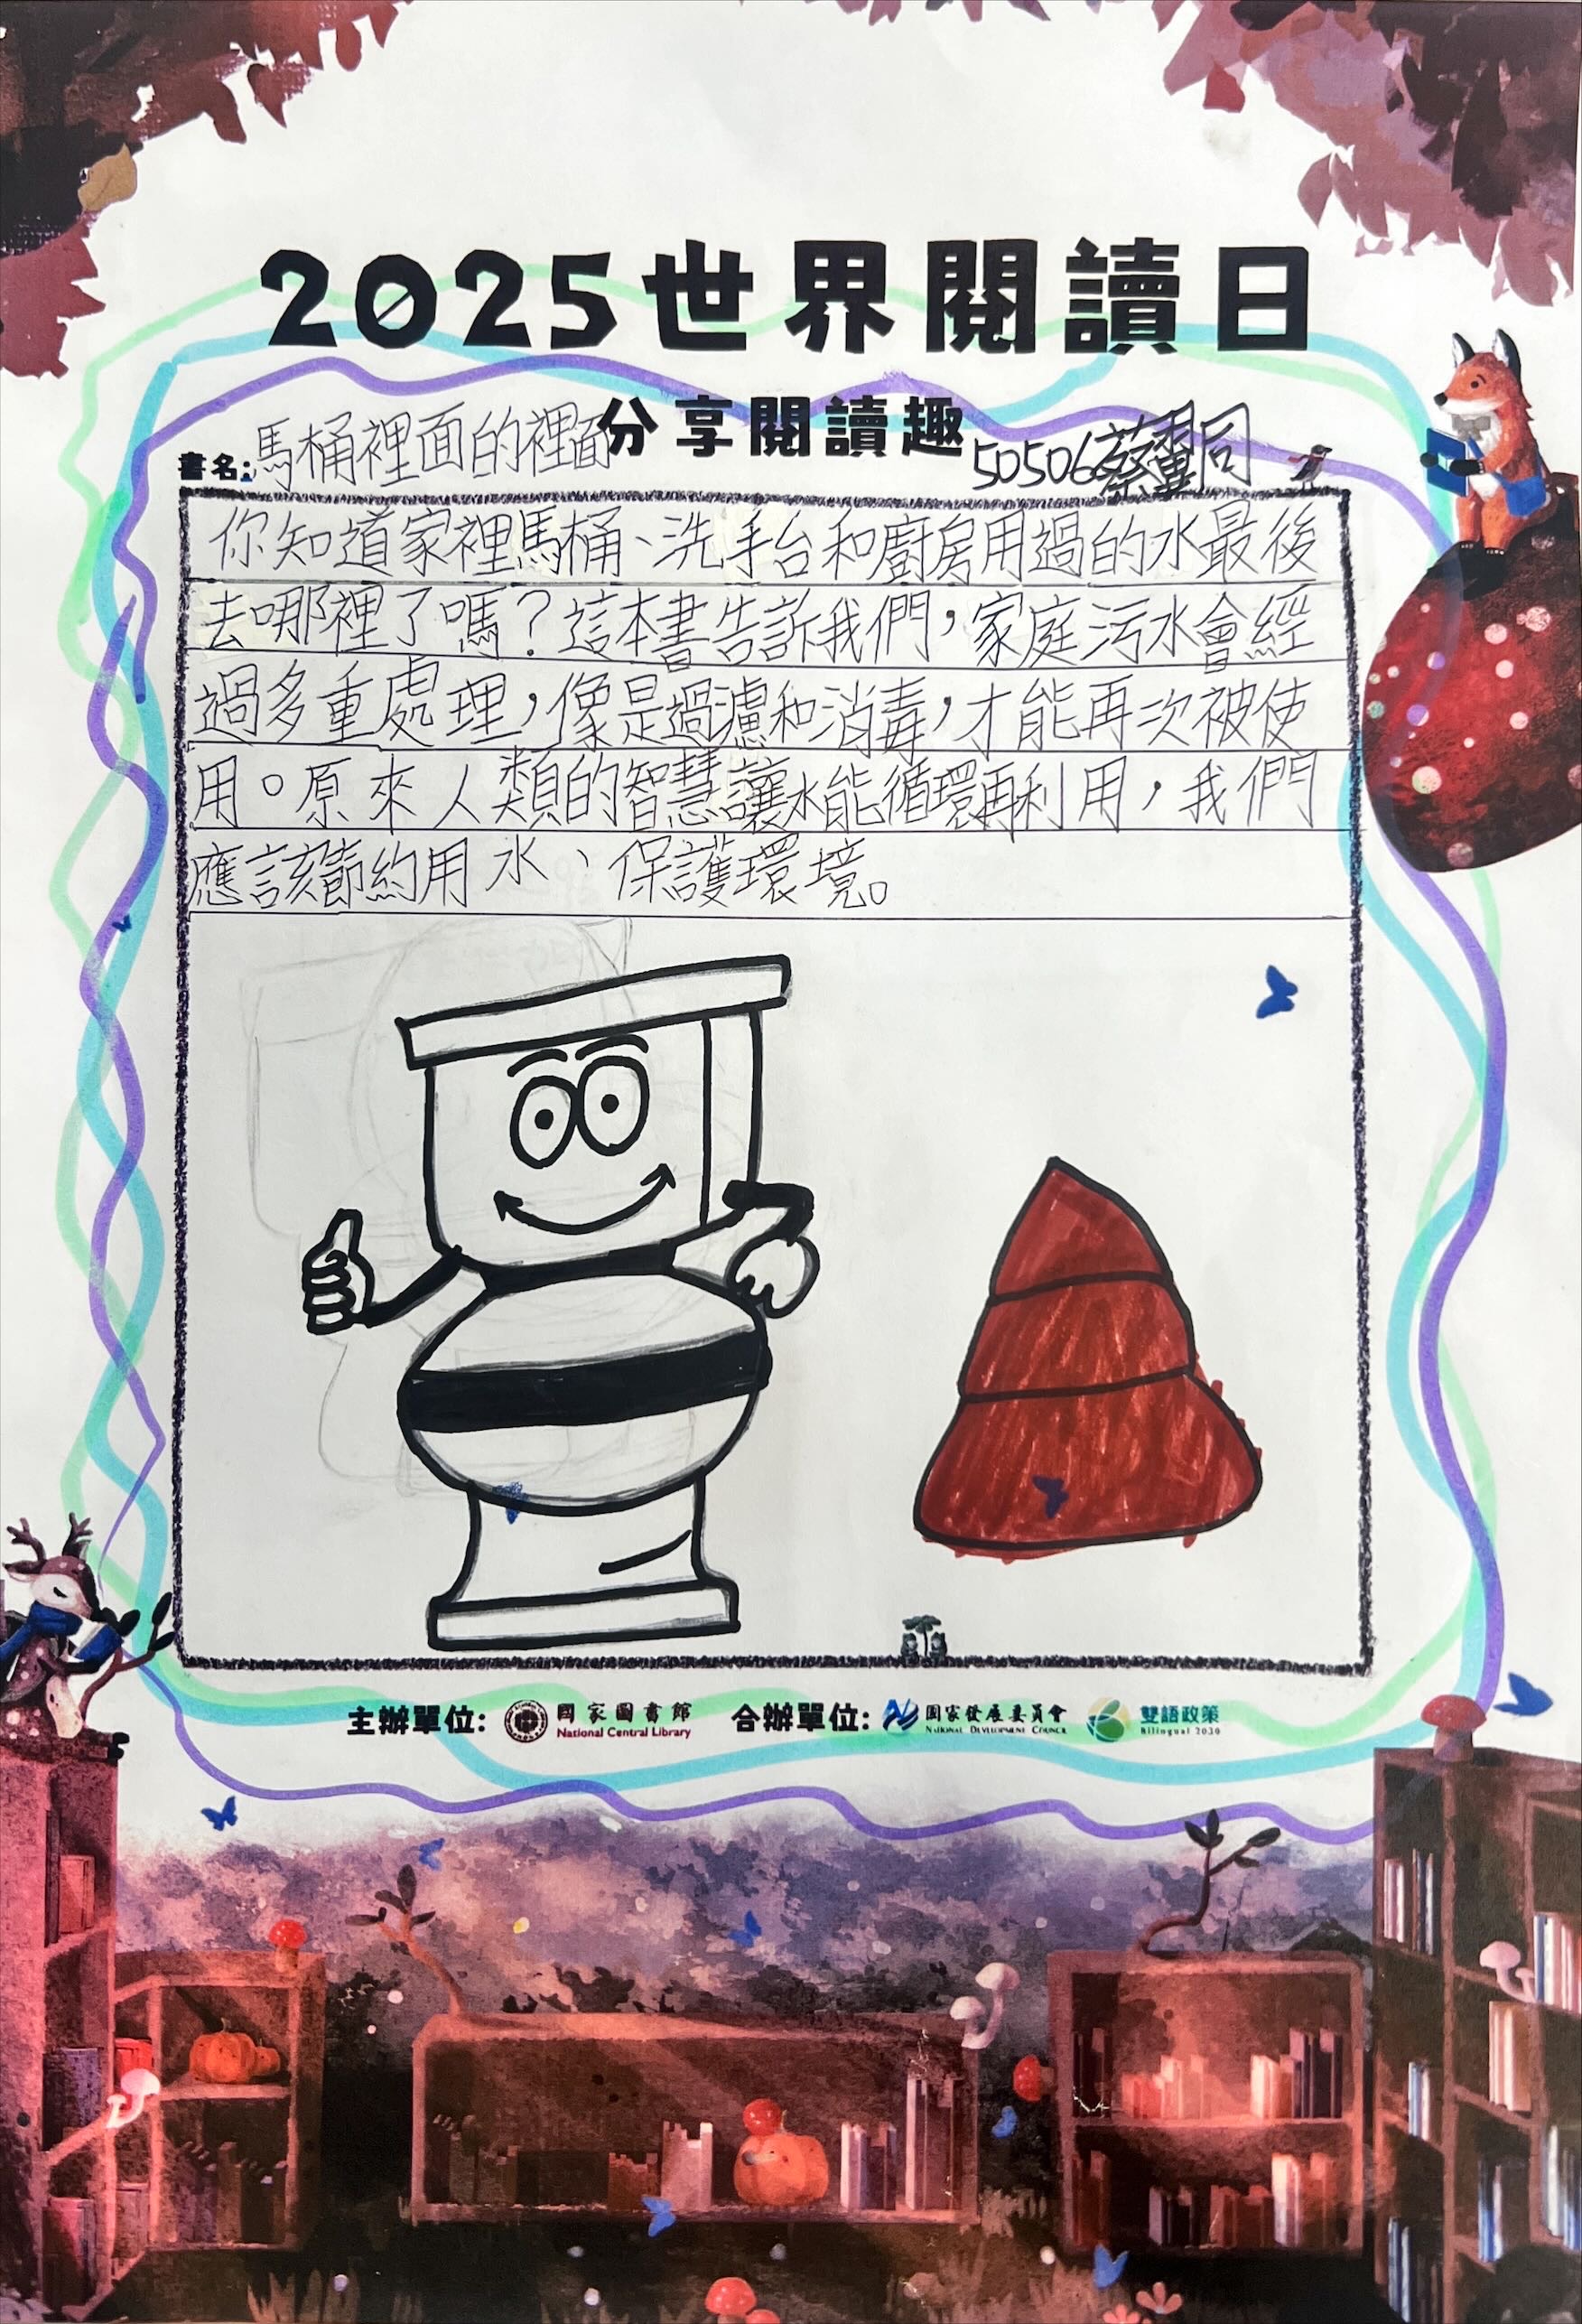 2025世界閱讀日
分享閱讀趣
書名:馬桶裡面的裡面
50506蔡 同
你知道家裡馬桶、洗手台和廚房用過的水最後
去哪裡了嗎？這本書告訴我們，家庭污水會經
過多重處理，像是過濾和消毒，才能再次被使
用。原來人類的智慧讓水能循環再利用，我們
應該節約用水、保護環境。
主辦單位: 國家圖書館 National Central Library 合辦單位: 國家發展委員會 National Development Council 雙語政策 Bilingual 2030